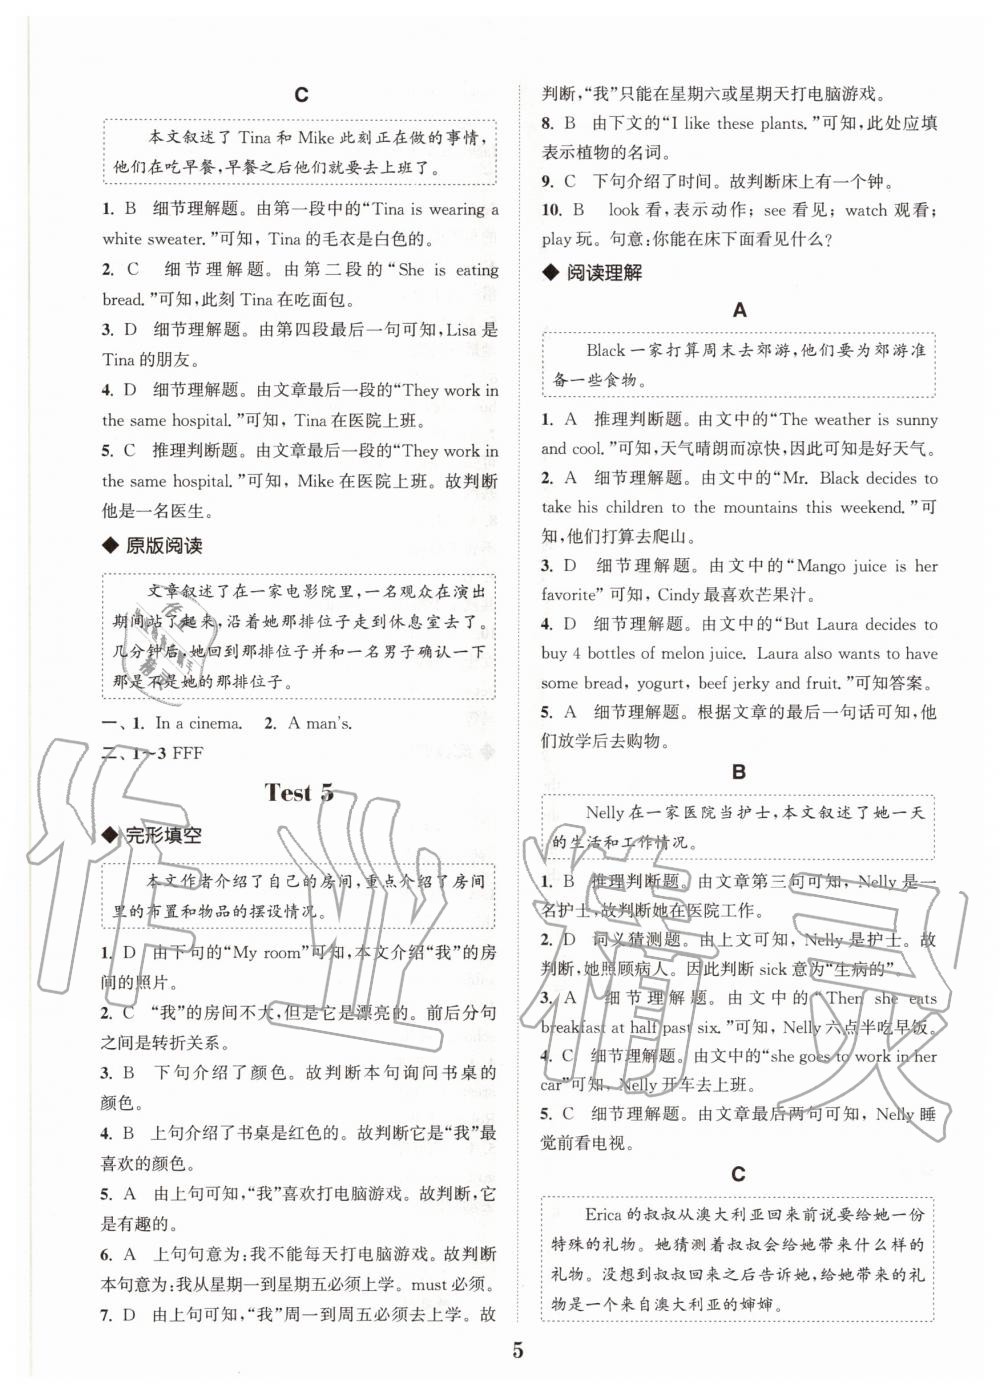 C
本文叙述了 Tina 和 Mike 此刻正在做的事情，
他们在吃早餐，早餐之后他们就要去上班了。
1. B　细节理解题。由第一段中的“Tina is wearing a
white sweater.”可知，Tina 的毛衣是白色的。
2. C　细节理解题。由第二段的“She is eating
bread.”可知，此刻 Tina 在吃面包。
3. D　细节理解题。由第四段最后一句可知，Lisa 是
Tina 的朋友。
4. D　细节理解题。由文章最后一段的“They work in
the same hospital.”可知，Tina 在医院上班。
5. C　推理判断题。由文章最后一段的“They work in
the same hospital.”可知，Mike 在医院上班。故判断
他是一名医生。
◆ 原版阅读
文章叙述了在一家电影院里，一名观众在演出
期间站了起来，沿着她那排位子走到休息室去了。
几分钟后，她回到那排位子并和一名男子确认一下
那是不是她的那排位子。
一、1. In a cinema.　2. A man's.
二、1～3 FFF
Test 5
◆ 完形填空
本文作者介绍了自己的房间，重点介绍了房间
里的布置和物品的摆设情况。
1. D　由下句的“My room”可知，本文介绍“我”的房
间的照片。
2. C　“我”的房间不大，但是它是漂亮的。前后分句
之间是转折关系。
3. B　下句介绍了颜色。故判断本句询问书桌的
颜色。
4. B　上句介绍了书桌是红色的。故判断它是“我”最
喜欢的颜色。
5. A　由上句可知，“我”喜欢打电脑游戏。故判断，它
是有趣的。
6. A　上句句意为：我不能每天打电脑游戏。故判断
本句意为：我从星期一到星期五必须上学。must 必须。
7. D　由上句可知，“我”周一到周五必须去上学。故
判断，“我”只能在星期六或星期天打电脑游戏。
8. B　由下文的“I like these plants.”可知，此处应填
表示植物的名词。
9. C　下句介绍了时间。故判断床上有一个钟。
10. B　look 看，表示动作；see 看见；watch 观看；
play 玩。句意：你能在床下面看见什么？
◆ 阅读理解
A
Black 一家打算周末去郊游，他们要为郊游准
备一些食物。
1. A　推理判断题。由文中的“The weather is sunny
and cool.”可知，天气晴朗而凉快，因此可知是好天气。
2. A　细节理解题。由文中的“Mr. Black decides to
take his children to the mountains this weekend.”可
知，他们打算去爬山。
3. D　细节理解题。由文中的“Mango juice is her
favorite”可知，Cindy 最喜欢芒果汁。
4. D　细节理解题。由文中的“But Laura decides to
buy 4 bottles of melon juice. Laura also wants to have
some bread, yogurt, beef jerky and fruit.”可知答案。
5. A　细节理解题。根据文章的最后一句话可知，他
们放学后去购物。
B
Nelly 在一家医院当护士，本文叙述了她一天
的生活和工作情况。
1. B　推理判断题。由文章第三句可知，Nelly 是一
名护士，故判断她在医院工作。
2. D　词义猜测题。由上文可知，Nelly 是护士。故
判断，她照顾病人。因此判断 sick 意为“生病的”。
3. A　细节理解题。由文中的“Then she eats
breakfast at half past six.”可知，Nelly 六点半吃早饭。
4. C　细节理解题。由文中的“she goes to work in her
car”可知，Nelly 开车去上班。
5. C　细节理解题。由文章最后两句可知，Nelly 睡
觉前看电视。
C
Erica 的叔叔从澳大利亚回来前说要给她一份
特殊的礼物。她猜测着叔叔会给她带来什么样的
礼物。没想到叔叔回来之后告诉她，给她带来的礼
物是一个来自澳大利亚的婶婶。
5
作业精灵